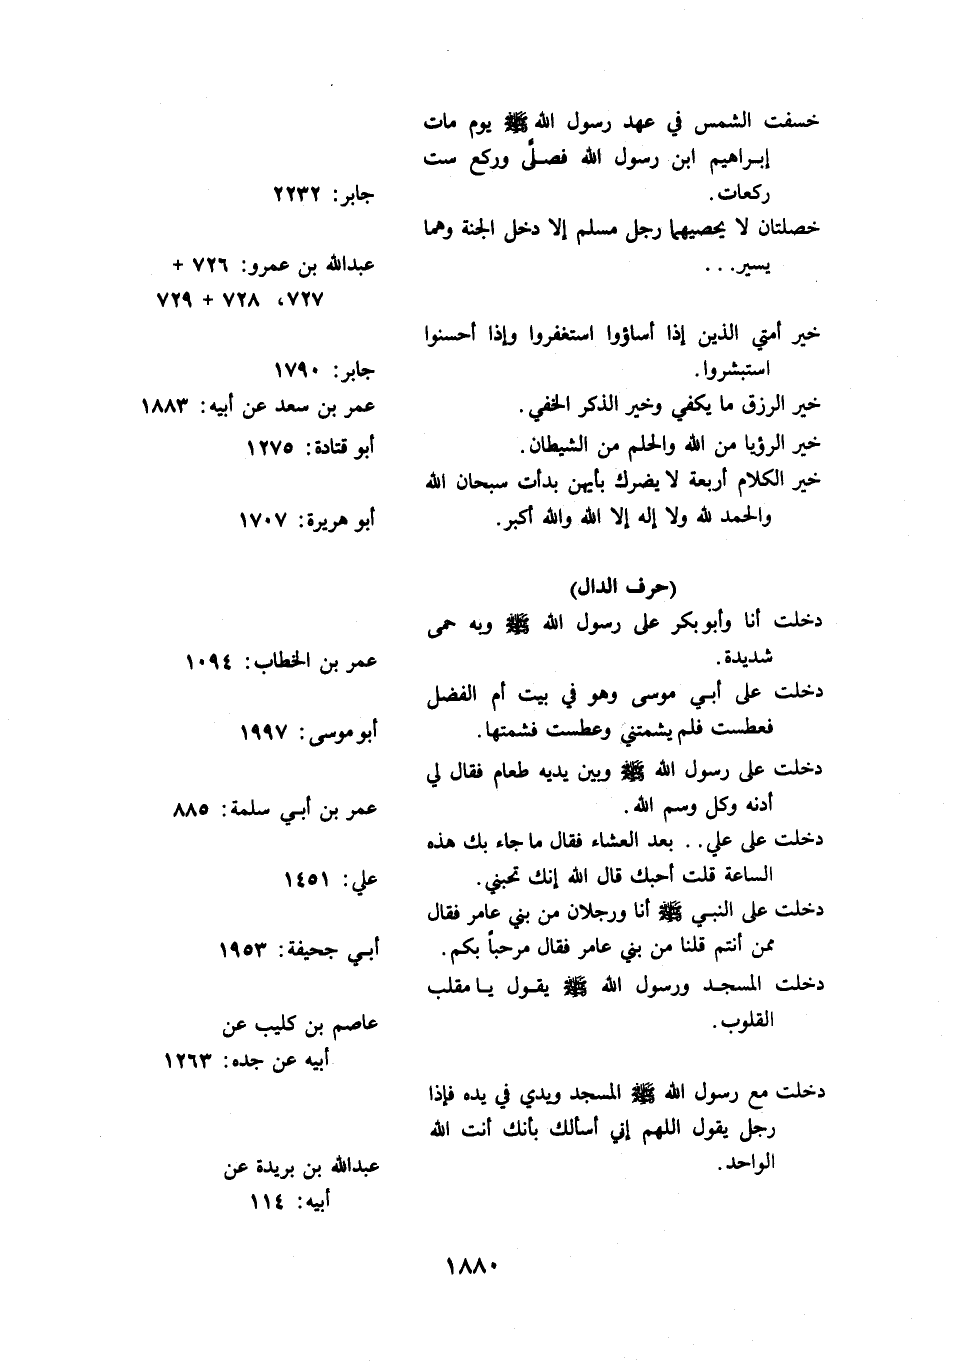 خسفت الشمس في عهد رسول الله ﷺ يوم مات
إبـراهيم ابن رسول الله فصـلَّى وركع ست
ركعات. جابر: ٢٢٣٢
خصلتان لا يحصيهما رجل مسلم إلا دخل الجنة وهما
يسير... عبدالله بن عمرو: ٧٢٦ +
٧٢٧، ٧٢٨ + ٧٢٩
خير أمتي الذين إذا أساؤوا استغفروا وإذا أحسنوا
استبشروا. جابر: ١٧٩٠
خير الرزق ما يكفي وخير الذكر الخفي. عمر بن سعد عن أبيه: ١٨٨٣
خير الرؤيا من الله والحلم من الشيطان. أبو قتادة: ١٢٧٥
خير الكلام أربعة لا يضرك بأيهن بدأت سبحان الله
والحمد لله ولا إله إلا الله والله أكبر. أبو هريرة: ١٧٠٧
(حرف الدال)
دخلت أنا وأبو بكر على رسول الله ﷺ وبه حمى
شديدة. عمر بن الخطاب: ١٠٩٤
دخلت على أبـي موسى وهو في بيت أم الفضل
فعطست فلم يشمتني وعطست فشمتها. أبو موسى: ١٩٩٧
دخلت على رسول الله ﷺ وبين يديه طعام فقال لي
أدنه وكل وسم الله. عمر بن أبـي سلمة: ٨٨٥
دخلت على علي.. بعد العشاء فقال ما جاء بك هذه
الساعة قلت أحبك قال الله إنك تحبني. علي: ١٤٥١
دخلت على النبـي ﷺ أنا ورجلان من بني عامر فقال
ممن أنتم قلنا من بني عامر فقال مرحباً بكم. أبـي جحيفة: ١٩٥٣
دخلت المسجـد ورسول الله ﷺ يقـول يـا مقلب
القلوب. عاصم بن كليب عن
أبيه عن جده: ١٢٦٣
دخلت مع رسول الله ﷺ المسجد ويدي في يده فإذا
رجل يقول اللهم إني أسألك بأنك أنت الله
الواحد. عبدالله بن بريدة عن
أبيه: ١١٤
١٨٨٠